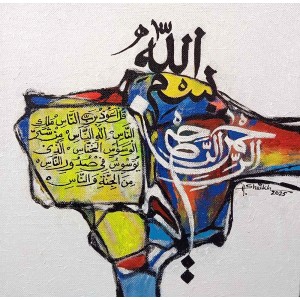 بسم الله
الرحمن الرحيم
قل اعوذ برب الناس ملك
الناس اله الناس من شر
الوسواس الخناس الذي
يوسوس في صدور الناس
من الجنة والناس
2025